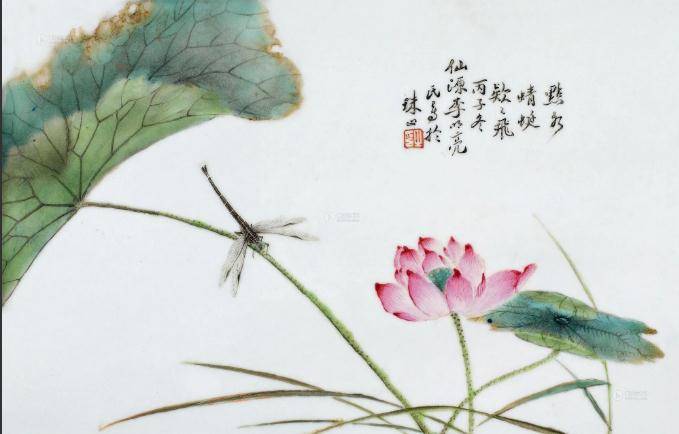 點水
蜻蜓
欵々飛
丙子冬
仙源李明亮
氏寫於
珠山